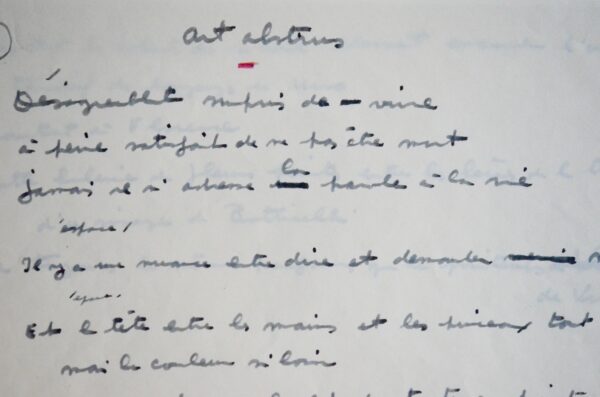 Art abstrus
Désagréablet surpris de vivre
à peine satisfait de ne pas être mort
jamais il n'adresse la parole à la vie
espace
Il y a une nuance entre dire et demander
espace
Et la tête entre les mains et les pinceaux tout
mais la couleur si loin